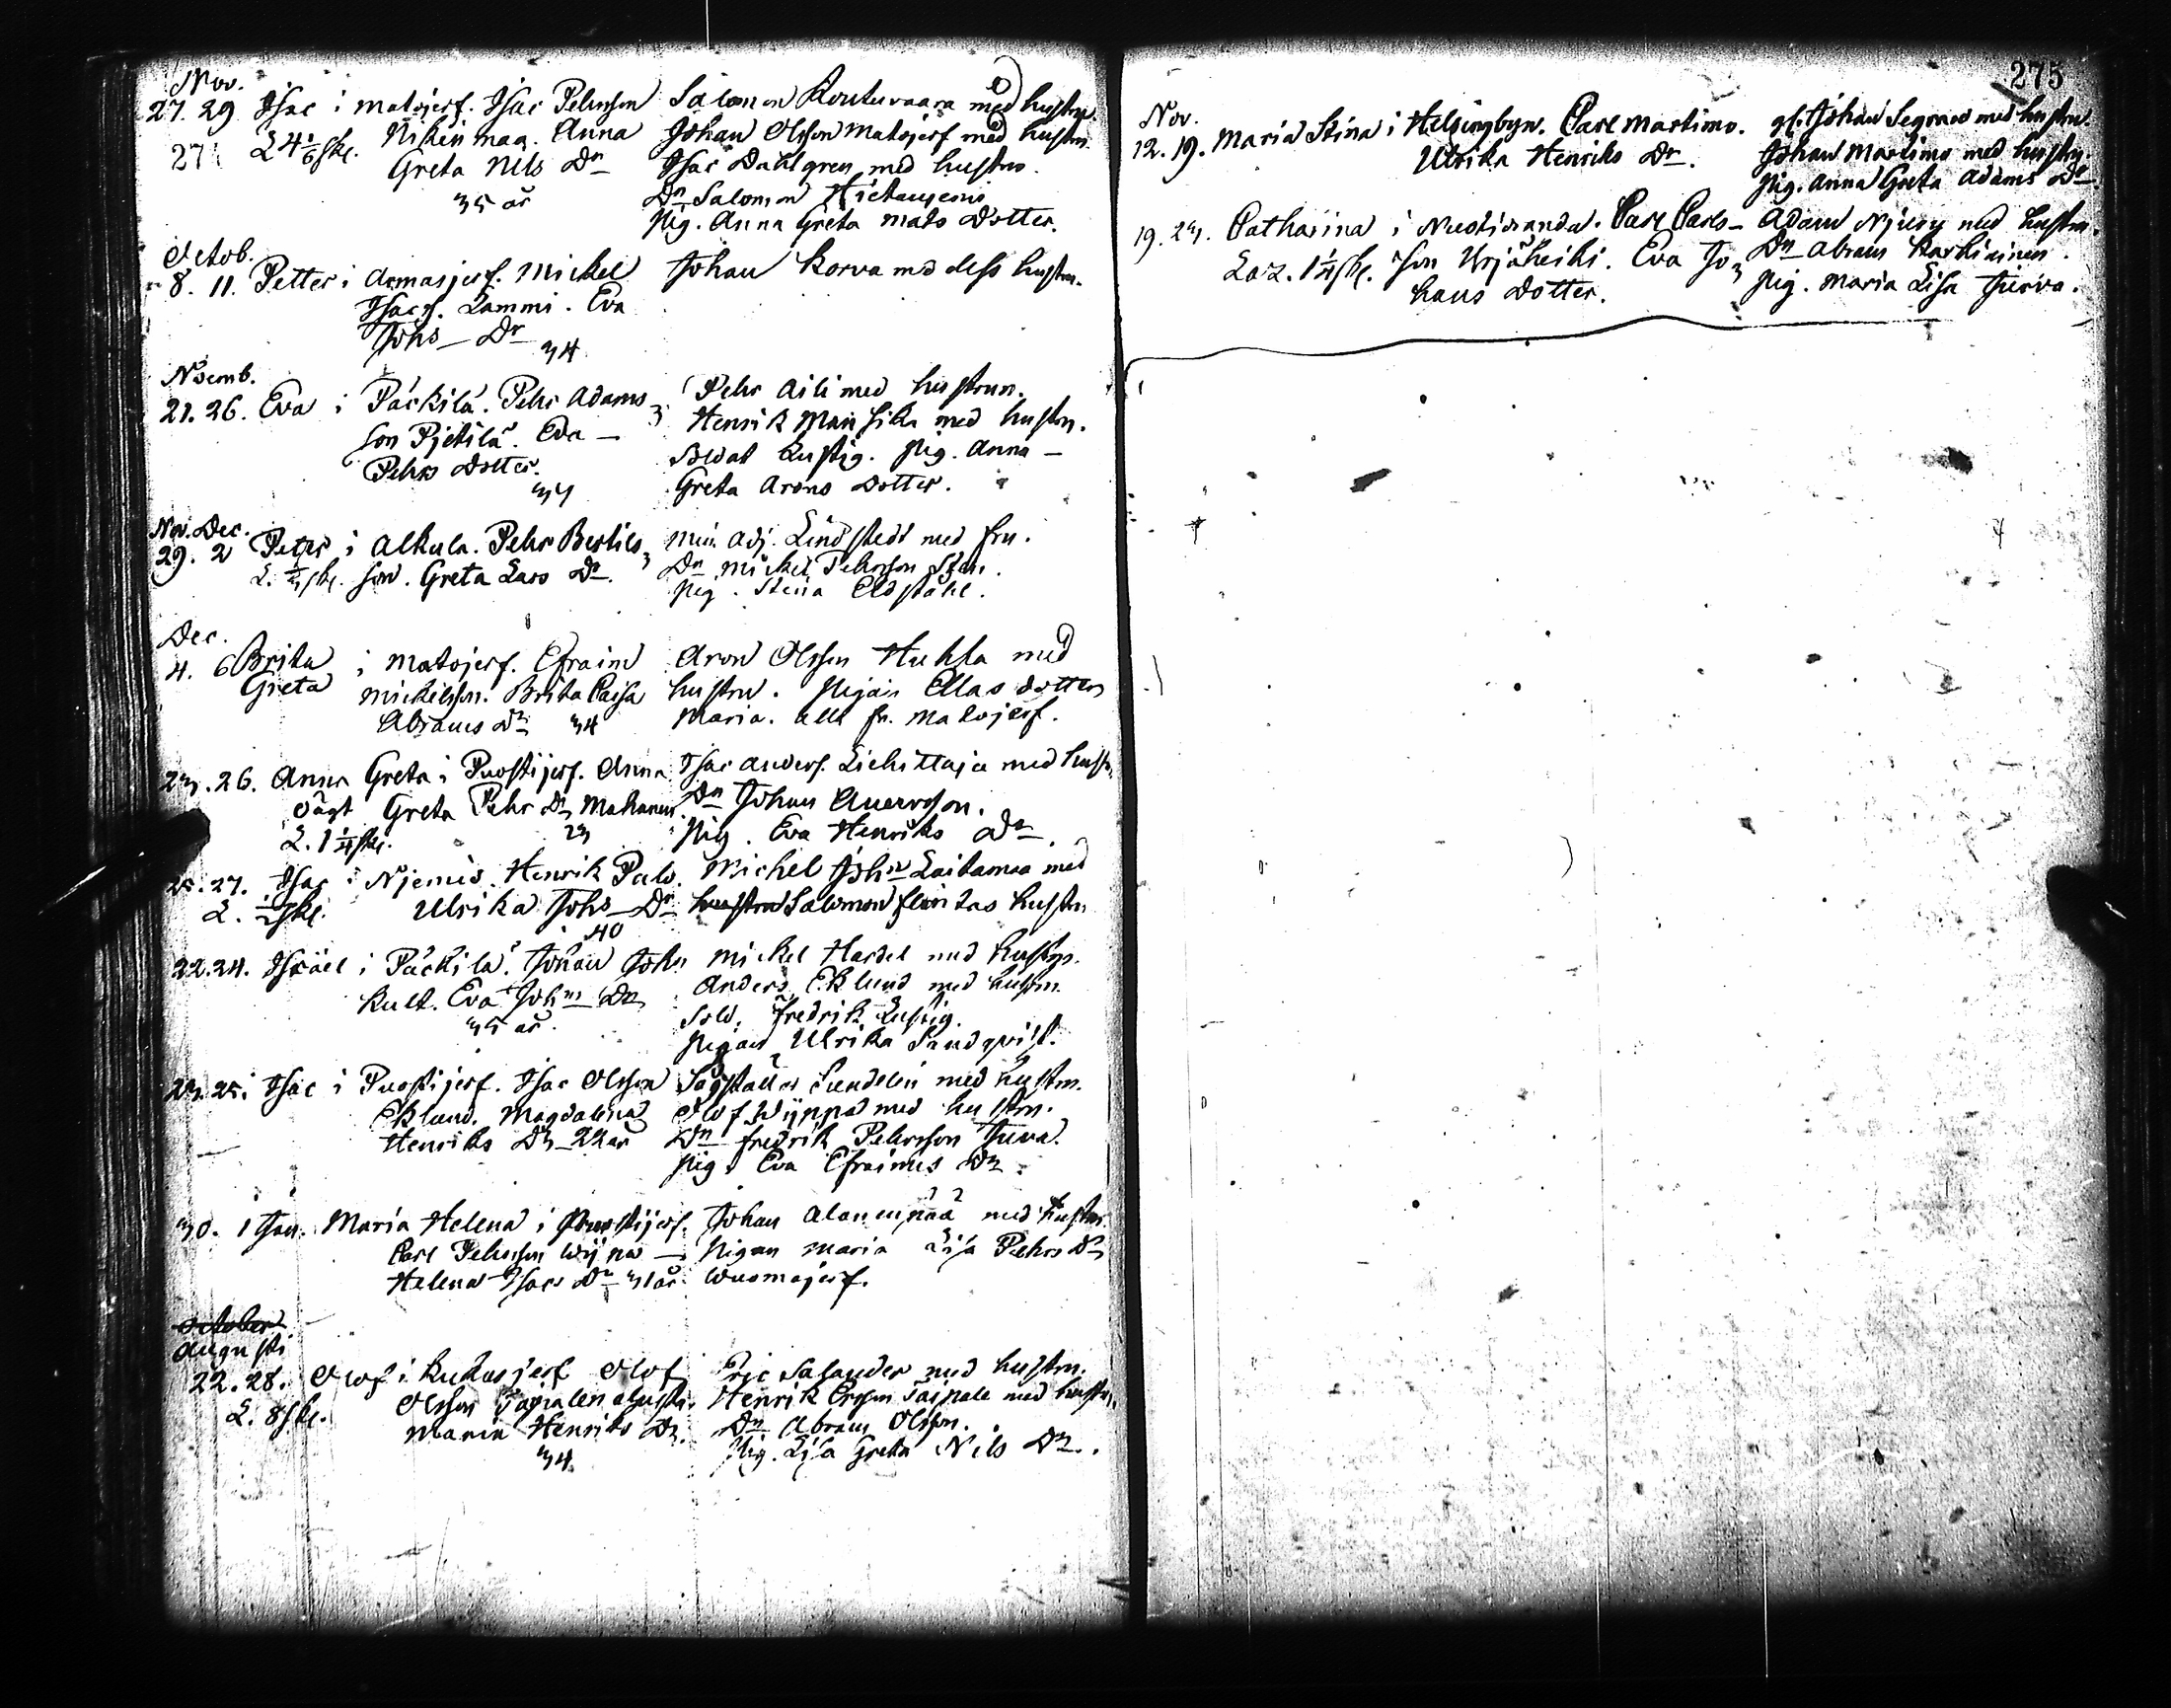 Nov.
27. 29 Isac i Matojerf. Isac Pehrsson Salomon Routuvaara med hustru
27 L 4 1/6 skl. Niskin maa. Anna Johan Olsson Matojerf med hustru
Greta Nils Dr Isac Dahlgren med hustru.
35 år Dr Salomon Hietaniemi
Pig. Anna Greta Mats Dotter.
Octob.
8. 11. Petter i Armasjerf. Mickel Johan Korva md dess hustru.
Isacs. Lammi. Eva
Johs Dr
34
Novemb.
21. 26. Eva i Päckilä. Pehr Adams Pehr Aili med hustrun.
son Pjetilä. Eva Henrik med hustru.
Pehrs Dotter. Soldat Lustig. Pig. Anna
34 Greta Arons Dotter.
Nov. Dec.
29. 2 Petter i Alkula. Pehr Bertils Min. Adj. Lindstedt med fru.
L. 1/3 skl. son. Greta Lars Dr. Dn Mickel Pehrsson
Pig. Stina Eldståhl.
Dec.
4. 6 Brita i Matojerf. Efraim Aron Olsson Huhta med
Greta Mickelsson. Brita Caisa hustru. Pigan Ellas dotter
Abrams Dr 34 Maria. alla fr. Matojerf.
23. 26. Anna Greta i Puostijerf. Anna Isac Anders. Liehittaja med hustru
oägt Greta Pehr Dr Dn Johan
L. 1 1/4 skl. 23 Pig. Eva Henriks Dr.
25. 27. Isac i Njemis. Henrik Palo. Michel Johs Laitamaa med
L. 1/2 skl. Ulrika Johs Dr hustru Salomon hustru
40
22. 24. Israel i Päckilä. Johan Johs Mickel Hardel med hustru.
Kult. Eva Johs Dr Anders Eklund med hustru.
35 år. Sold. Fredrik Lustig.
Pigan Ulrika Sandqvist.
23. 25. Isac i Puostijerf. Isac Olsson Sundelin med hustru.
Eklund. Magdalena Olof Wyppa med hustru.
Henriks Dr 22 år Dn Fredrik Pehrsson Juva.
Pig. Eva Efraims Dr.
30. 1 Jan. Maria Helena i Puostijerf. Johan Alanenpää med hustru.
Carl Pehrsson Pigan Maria Lisa Pehrs Dr
Helena Isacs Dr 31 år. Wuomajerf.
October
Augusti
22. 28. Olof i Kukasjerf Olof Eric Salander med hustru.
L. 8 skl. Olsson Henrik Ersson med hustru.
Maria Henriks Dr. Dn Abram Olsson.
34 Pig. Lisa Greta Nils Dr.
275
Nov.
12. 19. Maria Stina i Helsingbyn. Carl Martimo. gl. Johan med hustru.
Ulrika Henriks Dr. Johan Martimo med hustru.
Pig. Anna Greta Adams Dr.
19. 23. Catharina i Nuotioranda. Carl Carls- Adam Njury med hustru.
1 1/4 skl. son Yrjäheiki. Eva Jo Dn Abram Karhiainen.
hans Dotter. Pig. Maria Lisa